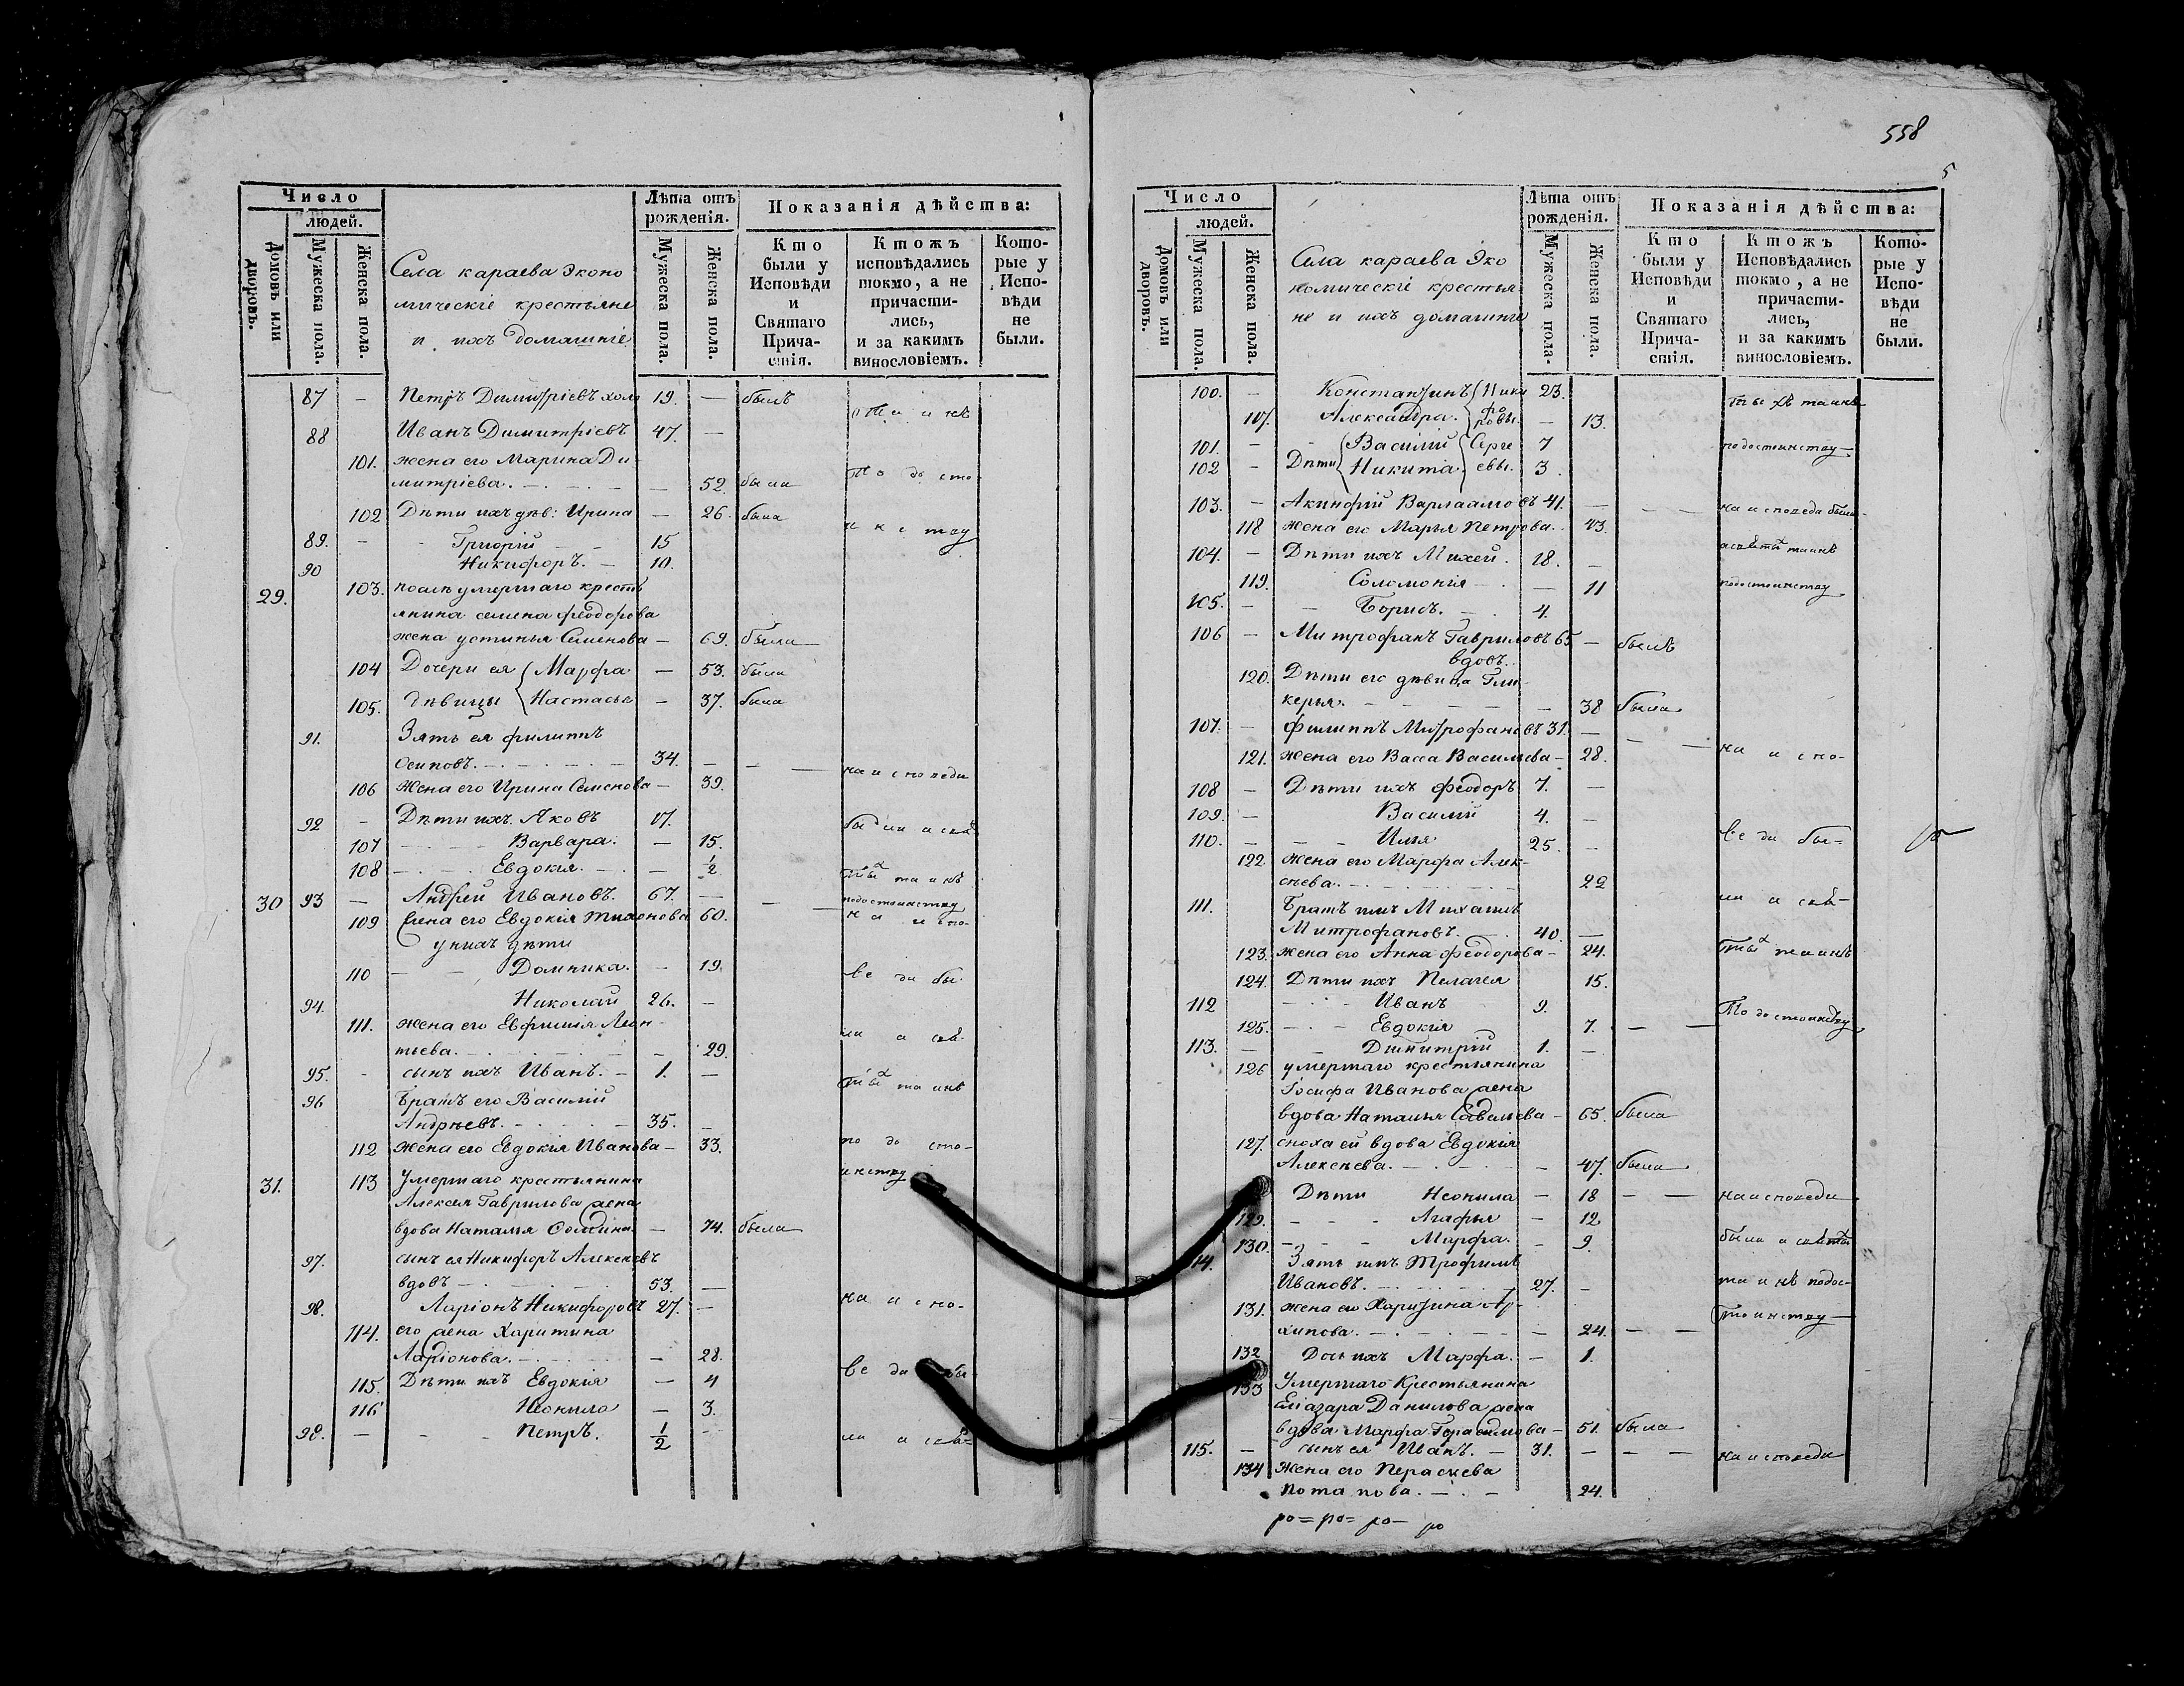 558
5
Число
людей.
Домовъ или дворовъ.
Мужеска пола.
Женска пола.
Села караева Эконо
мическіе крестьяне
и ихъ домашніе
Лѣта отъ рожденія.
Мужеска пола.
Женска пола.
Показанія дѣйства:
Кто были у Исповѣди и Святаго Причастія.
Ктожъ исповѣдались токмо, а не причастились, и за какимъ винословіемъ.
Которые у Исповѣди не были.
87 — Петръ Димитріевъ холо 19. — былъ
88 Иванъ Димитріевъ 47. —
101. жена его Марина Ди
митріева. — — 52. была
102 Дѣти ихъ дѣв: Ирина — 26. была
89. — Григорій — 15
90 Никифоръ. — 10.
29. 103. послѣ умершаго кресть
янина семена феодорова
жена устинья Семенова — 69. была
104 Дочери ея Марфа — 53. была
105. дѣвицы Настасья — 37. была
91. Зять ея филиппъ
Осиповъ. — 34. — — на исповеди
106 Жена его Ирина Семенова — 39.
92 — Дѣти ихъ Яковъ 17. были а свя
107 Варвара. — 15.
108 Евдокія. — ½ тыхъ таинъ
30 93 — Андрей Ивановъ. 67. — — недостоинству
109 жена его Евдокія Тихонова 60. на испо-
у нихъ дѣти
110 — Домника. — 19. ве ди бы-
94. Николай 26. —
111. жена его Евфимія Леон-
тьева. — 29. ли а свя-
95. - сынъ ихъ Иванъ. — 1. —
96 Братъ его Василій тыхъ таинъ
Андреевъ. — 35. —
112 жена его Евдокія Иванова — 33. не до сто-
31. 113 Умершаго крестьянина инству
Алексея Гаврилова жена
вдова Наталья — 74. была
97. сынъ ея Никифоръ Алексеевъ
вдовъ — 53. —
98. Ларіонъ Никифоровъ 27. — на испо-
114. его жена Харитина
Ларіонова. — — 28.
115. Дѣти ихъ Евдокія — 4 ве ди бы-
116 Неонила — 3.
98. — Петръ. ½ ли а свя-
Число
людей.
Домовъ или дворовъ.
Мужеска пола.
Женска пола.
Села караева Эко
номическіе крестья
не и ихъ домашніе
Лѣта отъ рожденія.
Мужеска пола.
Женска пола.
Показанія дѣйства:
Кто были у Исповѣди и Святаго Причастія.
Ктожъ Исповѣдались токмо, а не причастились, и за какимъ винословіемъ.
Которые у Исповѣди не были.
100. — Константинъ Ники 23.
117. Александра. форовы. — 13. тыхъ таинъ
101. — Василій Серге 7 недостоинству —
102 — Дѣти Никита евы. 3.
103. — Акинфій Варлаамовъ 41. — — на исповеди были
118 жена его Марья Петрова. 43.
104. — Дѣти ихъ Михей. 18. — а святыхъ таинъ
119. Соломонія — 11 недостоинству
105. — Борисъ. — 4.
106 — Митрофанъ Гавриловъ 65 — былъ
вдовъ.
120. Дѣти его дѣвица Гли
керья. — 38 была
107. — филиппъ Митрофановъ 31. —
121. жена его Васса Васильева — 28. на испо-
108 — Дѣти ихъ феодоръ 7. —
109. — Василій 4. —
110. — Илья 25. — ве ди бы-
122. жена его Марфа Алек-
сеева. — 22
111. Братъ имъ Михаилъ ли а свя-
Митрофановъ. 40. —
123. жена его Анна феодорова — 24. тыхъ таинъ
124. Дѣти ихъ Пелагея 15.
112 Иванъ 9.
125. Евдокія 7. — — недостоинству
113. — Димитрій 1. —
126 умершаго крестьянина
Іосифа Иванова жена
вдова Наталья Савельева — 65. была
127. сноха ей вдова Евдокія
Алексеева. — 47. была
Дѣти Неонила — 18 — — на исповеди
129. Агафья — 12
130. Марфа. — 9. были а святыхъ
14. Зять имъ Трофимъ
Ивановъ. — 27. — таинъ недос-
131. жена его Харитина Ар- тоинству
хипова. — 24. — —
132 Дочь ихъ Марфа. — 1.
133 Умершаго Крестьянина
Еліазара Данилова жена
вдова Марфа Герасимова — 51. была
115. — сынъ ея Иванъ. — 31. — — на исповеди
134 жена его Параскева
Потапова. — 24.